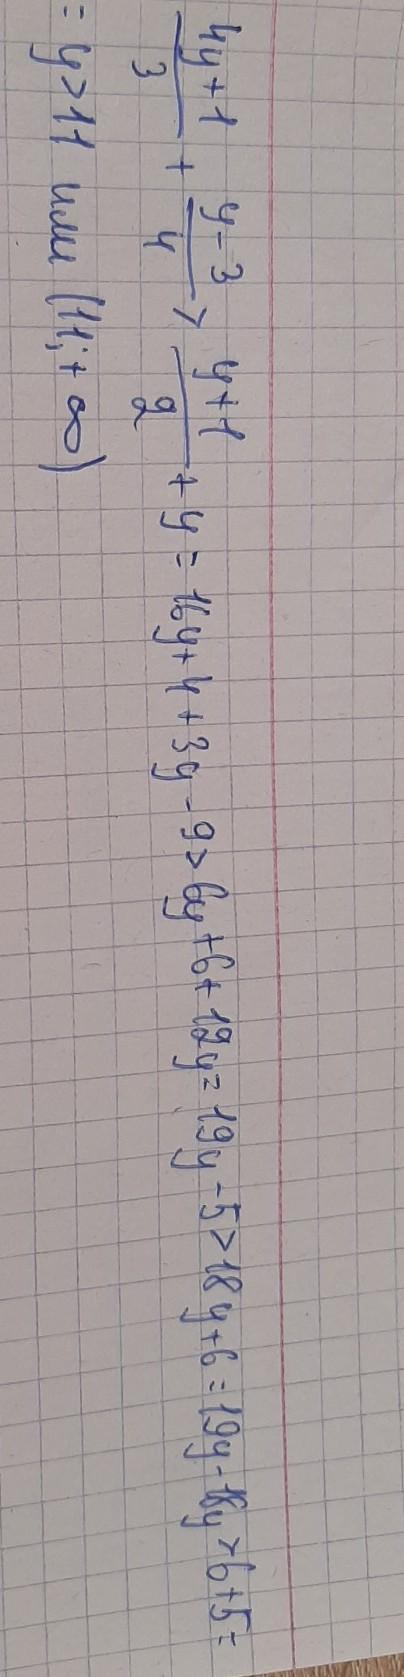 (4y+1)/3 + (y-3)/4 > (y+1)/2 + y = 16y+4+3y-9>6y+6+12y=19y-5>18y+6=19y-18y>6+5=
= y>11 или (11;+∞)